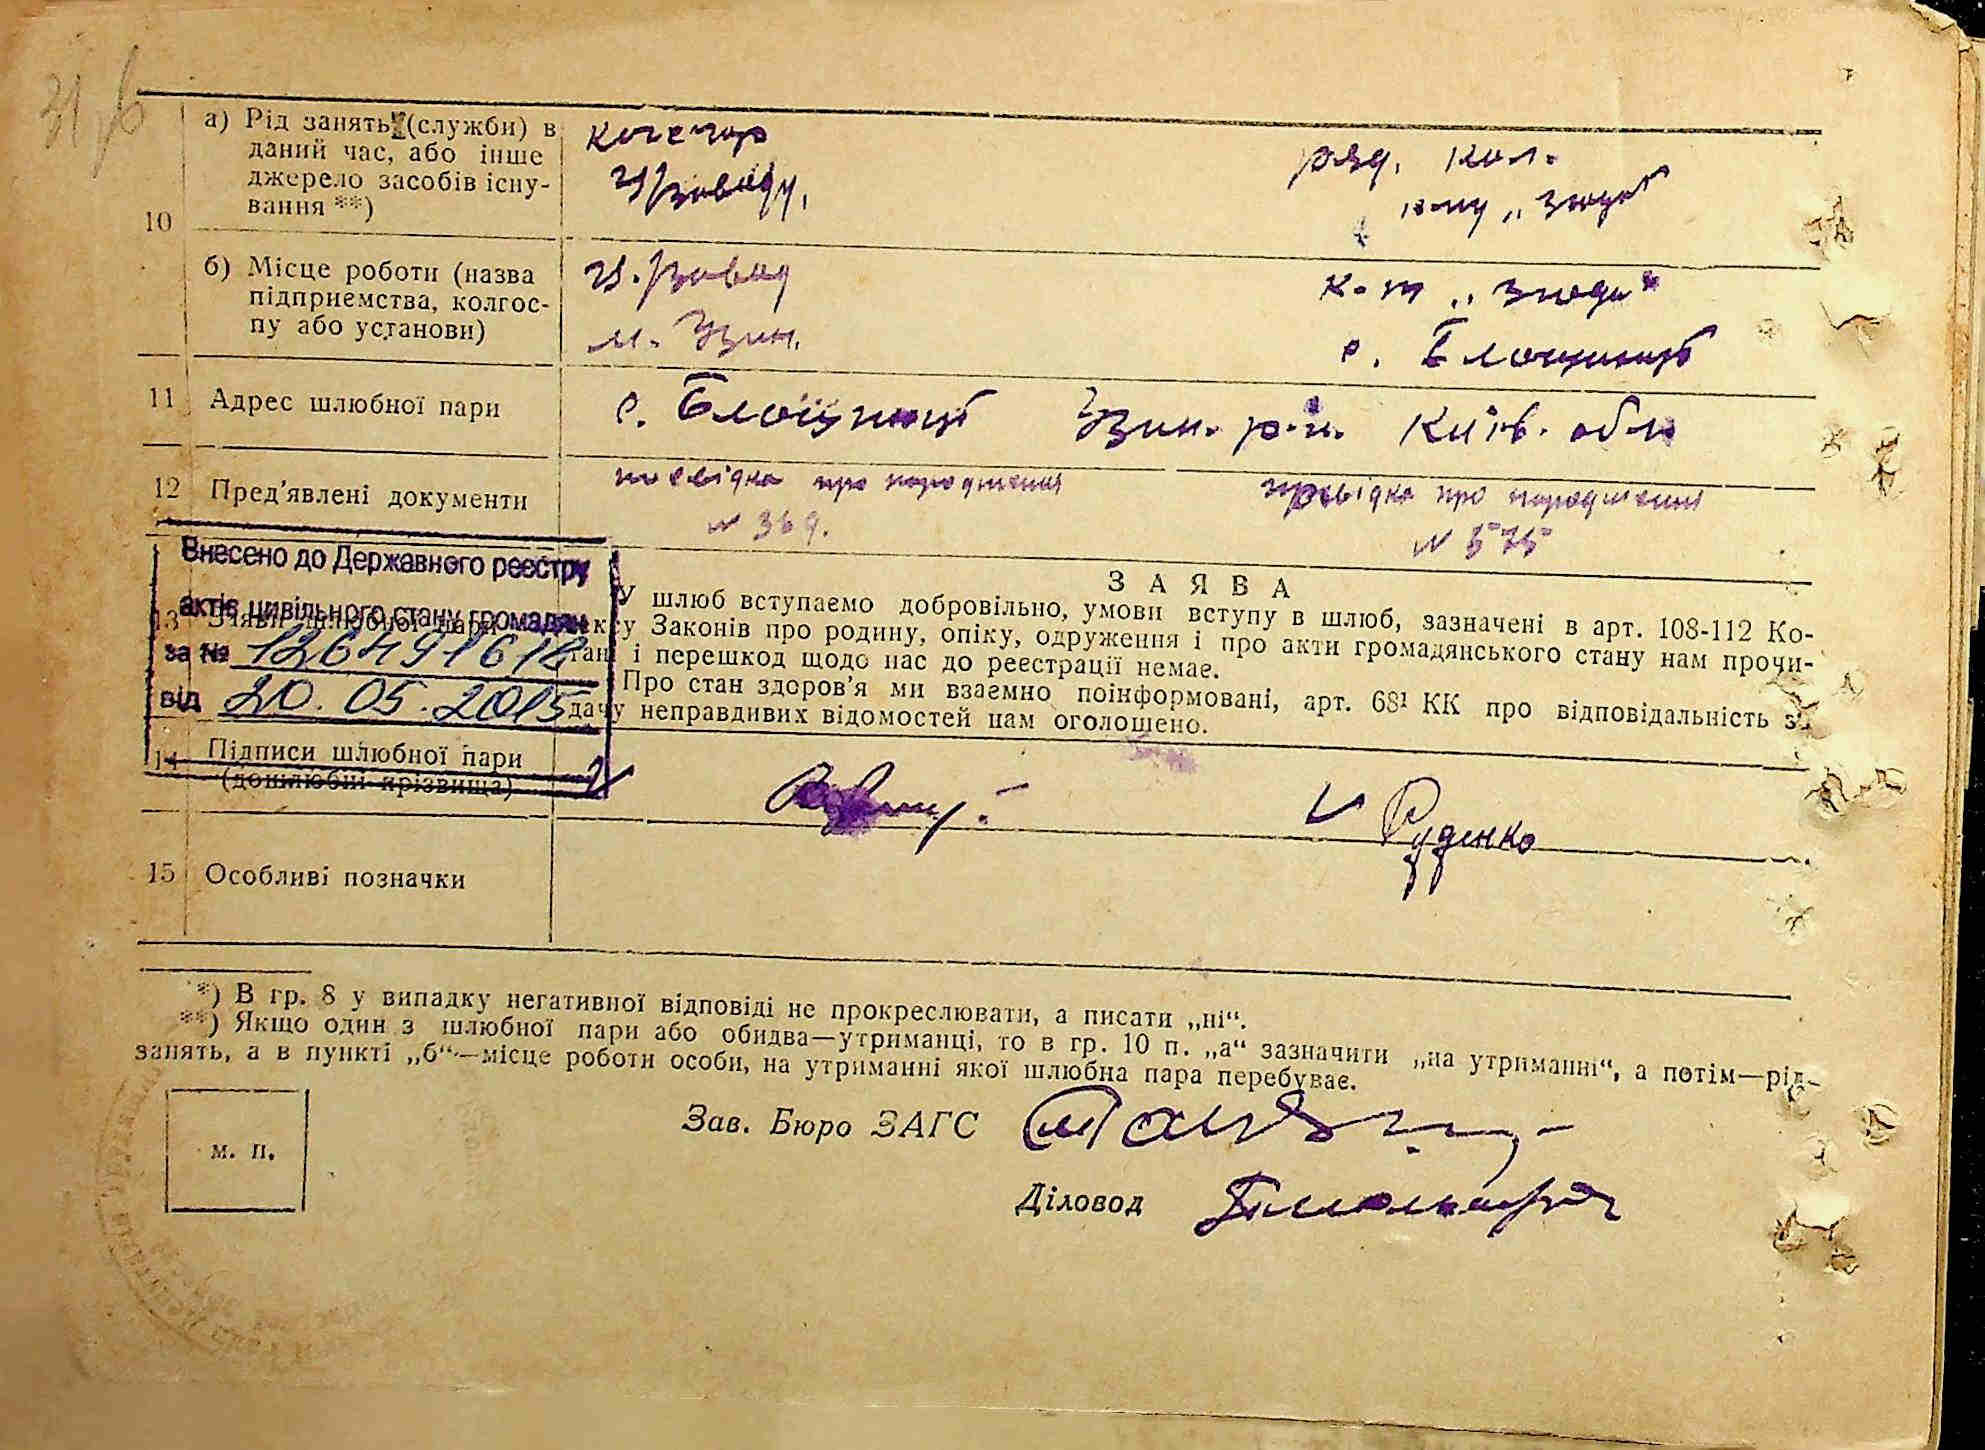 10
а) Рід занять (служби) в
даний час, або інше
джерело засобів існу-
вання **)
кочегар
ц/заводу,
ряд. кол.
к-пу „
б) Місце роботи (назва
підприємства, колгос-
пу або установи)
ц. завод
м. Узин.
к-п „
с. Блощинці
11 Адрес шлюбної пари
с. Блощинці Узин. р-н. Київ. обл
12 Пред'явлені документи
посвідка про народження
№ 369.
посвідка про народження
№ 575
Внесено до Державного реєстру
актів цивільного стану громадян
за №
від 20. 05. 2015
13
З А Я В А
У шлюб вступаємо добровільно, умови вступу в шлюб, зазначені в арт. 108-112 Ко-
ксу Законів про родину, опіку, одруження і про акти громадянського стану нам прочи-
тані і перешкод щодо нас до реєстрації немає.
Про стан здоров'я ми взаємно поінформовані, арт. 68¹ КК про відповідальність з
дачу неправдивих відомостей нам оголошено.
14 Підписи шлюбної пари
(дошлюбні прізвища)
Руденко
15 Особливі позначки
*) В гр. 8 у випадку негативної відповіді не прокреслювати, а писати „ні“.
**) Якщо один з шлюбної пари або обидва—утриманці, то в гр. 10 п. „а“ зазначити „на утриманні“, а потім—рід
занять, а в пункті „б“—місце роботи особи, на утриманні якої шлюбна пара перебуває.
м. п.
Зав. Бюро ЗАГС
Діловод